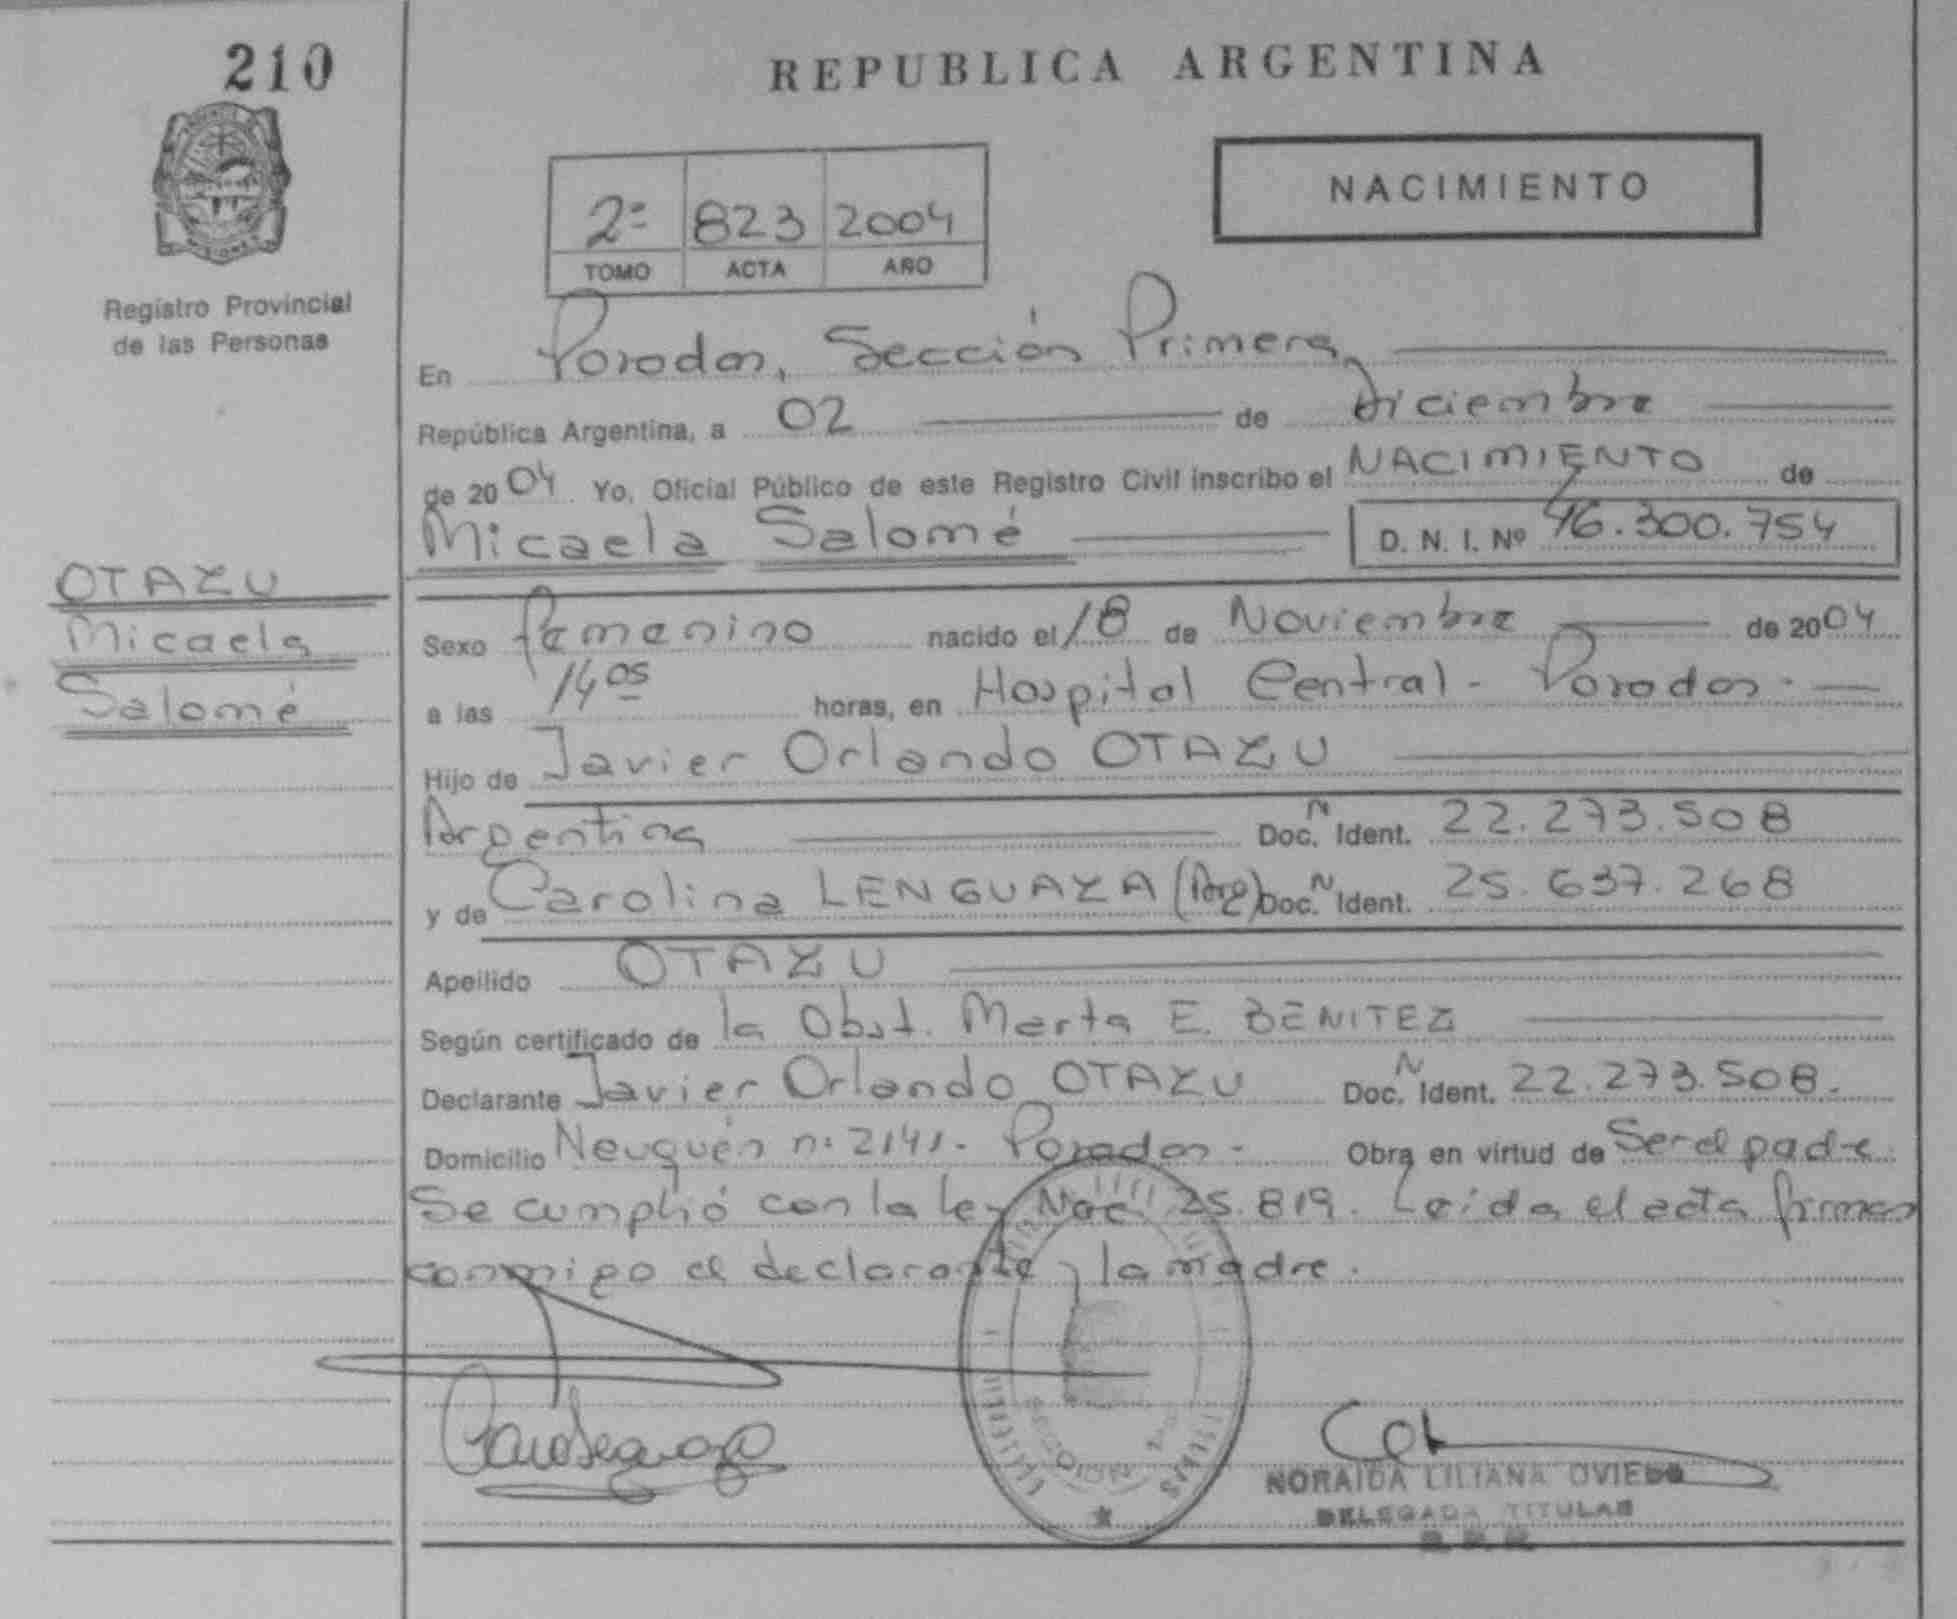 210
REPUBLICA ARGENTINA
NACIMIENTO
2º 823 2004
TOMO ACTA AÑO
Registro Provincial
de las Personas
En Posadas, Sección Primera,
República Argentina, a 02 de Diciembre
de 2004 Yo, Oficial Público de este Registro Civil inscribo el NACIMIENTO de
Micaela Salomé D. N. I. Nº 46.300.754
OTAZU
Micaela
Salomé
Sexo femenino nacido el 18 de Noviembre de 2004
a las 14 05 horas, en Hospital Central - Posadas.
Hijo de Javier Orlando OTAZU
Argentina Doc. N Ident. 22.273.508
y de Carolina LENGUAZA (Arg) Doc. N Ident. 25.637.268
Apellido OTAZU
Según certificado de la Obst. Marta E. BENITEZ
Declarante Javier Orlando OTAZU Doc. N Ident. 22.273.508.
Domicilio Neuquén nº 2141 - Posadas - Obra en virtud de Ser el padre
Se cumplió con la ley Nac. 25.819. Leída el acta firman
conmigo el declarante y la madre.
NORAIDA LILIANA OVIEDO
DELEGADA TITULAR